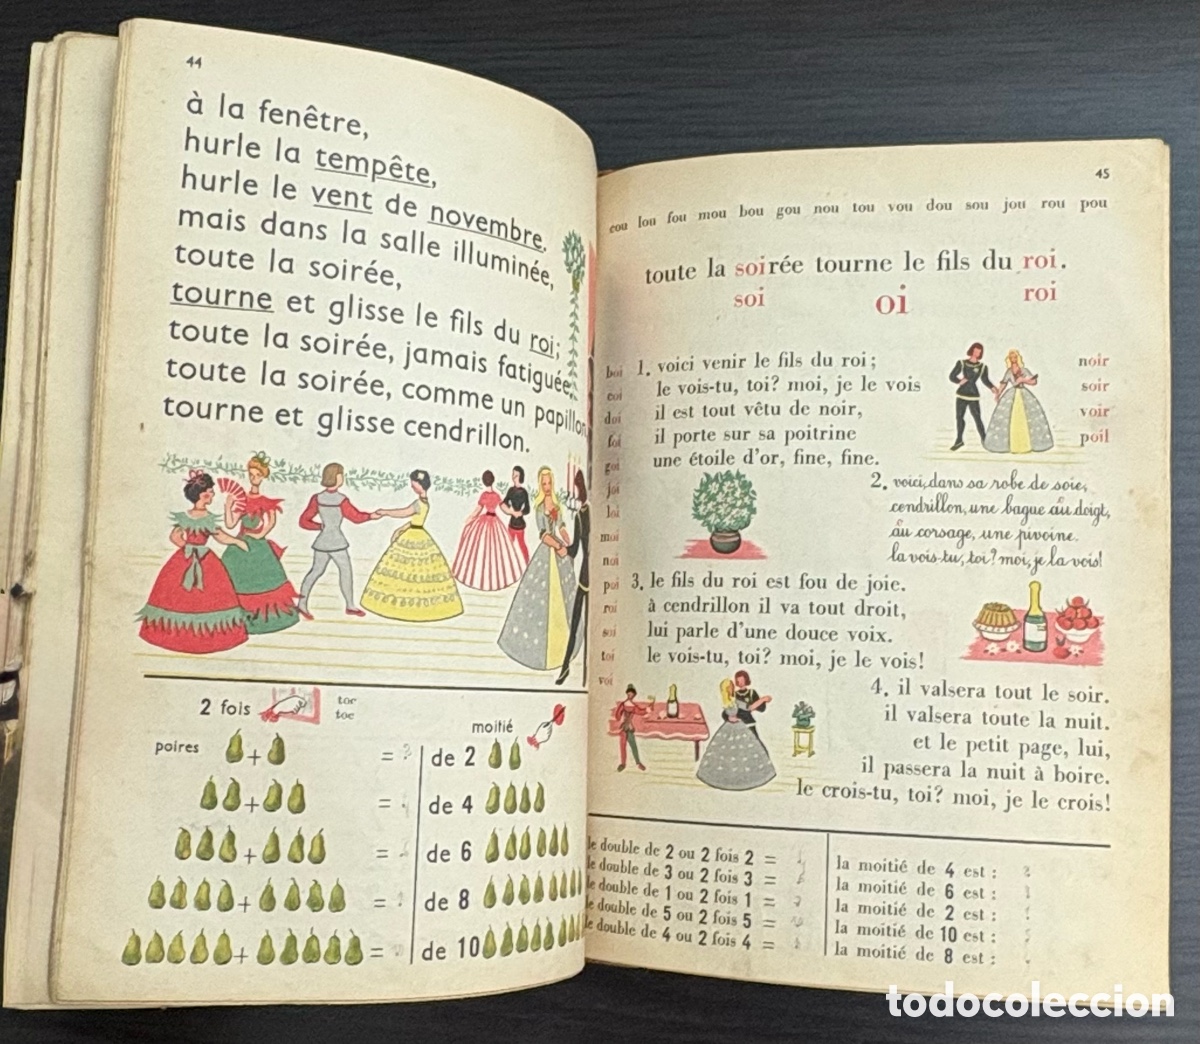 44
à la fenêtre,
hurle la tempête,
hurle le vent de novembre,
mais dans la salle illuminée,
toute la soirée,
tourne et glisse le fils du roi;
toute la soirée, jamais fatiguée,
toute la soirée, comme un papillon
tourne et glisse cendrillon.
2 fois
toc
toc
poires
+ =
+ =
+ =
+ =
+ =
moitié
de 2
de 4
de 6
de 8
de 10
45
cou lou fou mou bou gou nou tou vou dou sou jou rou pou
toute la soirée tourne le fils du roi.
soi oi roi
boi
coi
doi
foi
goi
joi
loi
moi
noi
poi
roi
soi
toi
voi
1. voici venir le fils du roi;
le vois-tu, toi? moi, je le vois
il est tout vêtu de noir,
il porte sur sa poitrine
une étoile d'or, fine, fine.
noir
soir
voir
poil
2. voici, dans sa robe de soie,
cendrillon, une bague au doigt,
au corsage, une pivoine.
la vois-tu, toi? moi, je la vois!
3. le fils du roi est fou de joie.
à cendrillon il va tout droit,
lui parle d'une douce voix.
le vois-tu, toi? moi, je le vois!
4. il valsera tout le soir.
il valsera toute la nuit.
et le petit page, lui,
il passera la nuit à boire.
le crois-tu, toi? moi, je le crois!
le double de 2 ou 2 fois 2 =
le double de 3 ou 2 fois 3 =
le double de 1 ou 2 fois 1 =
le double de 5 ou 2 fois 5 =
le double de 4 ou 2 fois 4 =
la moitié de 4 est :
la moitié de 6 est :
la moitié de 2 est :
la moitié de 10 est :
la moitié de 8 est :
todocoleccion